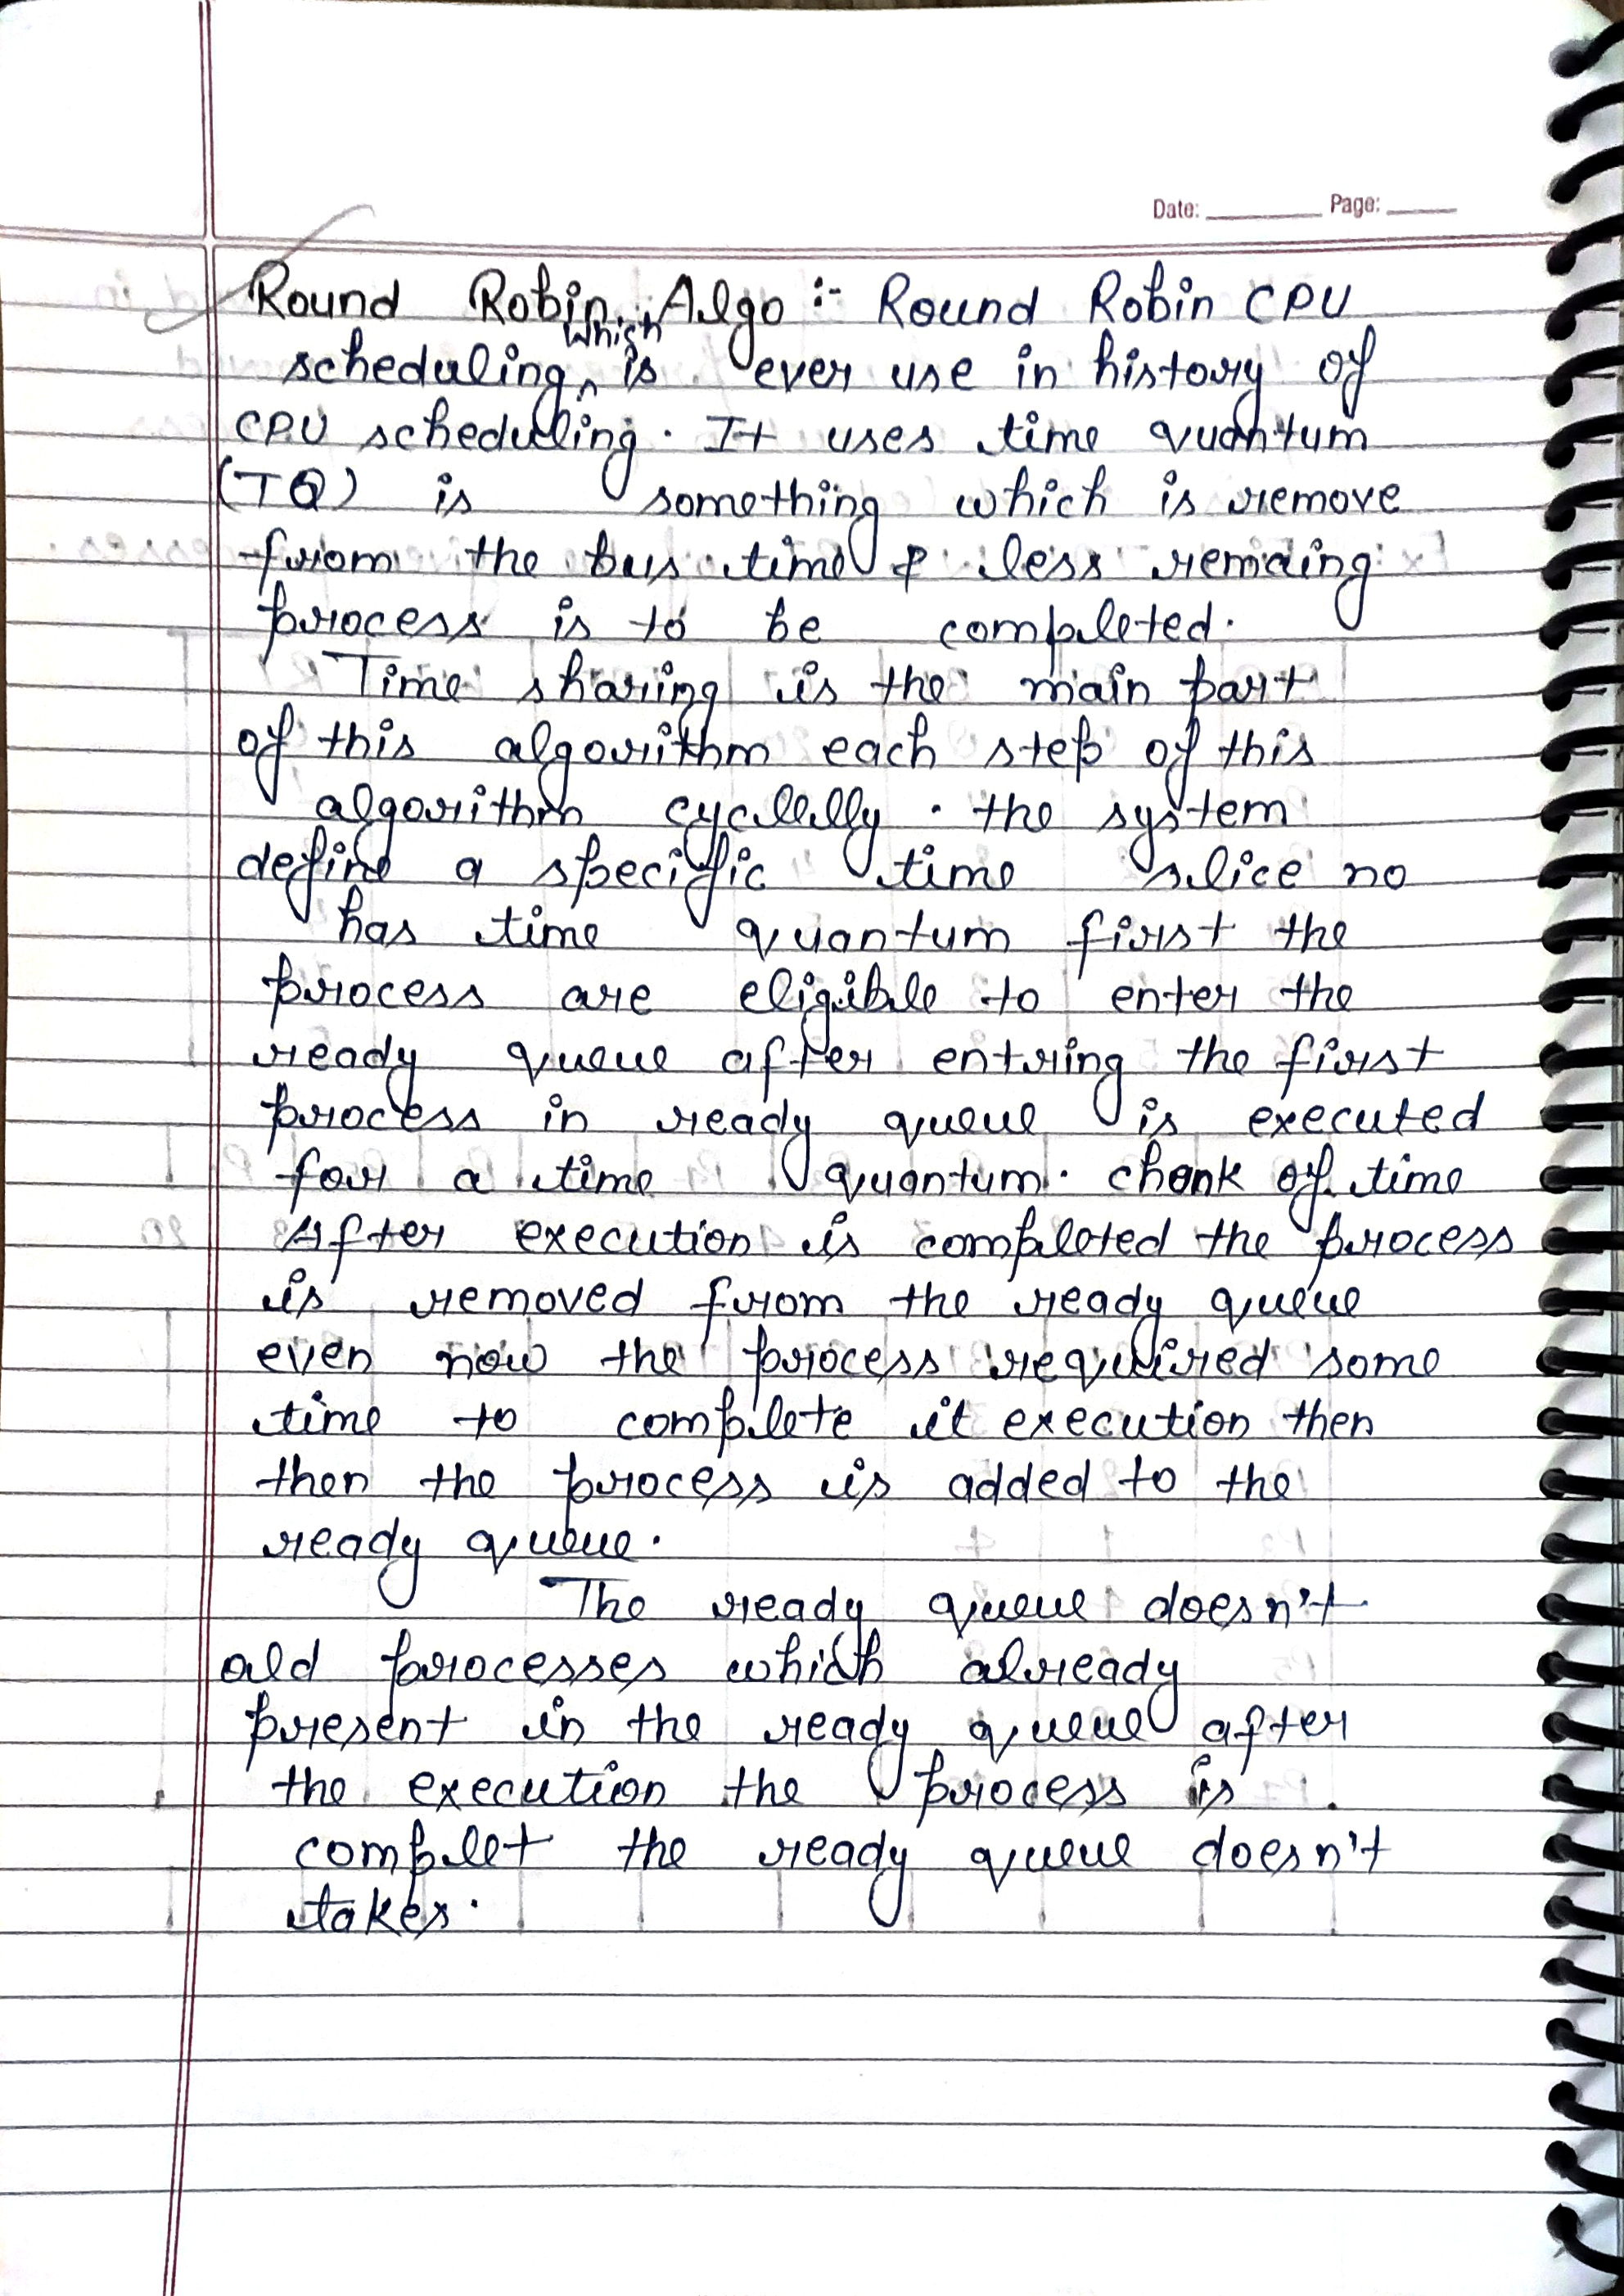 Date: Page:
Round Robin Algo :- Round Robin CPU
which
scheduling ^ is ever use in history of
CPU scheduling. It uses time quantum
(TQ) is something which is remove
from the bus time & less remaing
process is to be completed.
Time sharing is the main part
of this algorithm each step of this
algorithm cycllelly. the system
define a specific time slice no
has time quantum first the
process are eligible to enter the
ready queue after entring the first
process in ready queue is executed
for a time quantum. chonk of time
After execution is completed the process
is removed from the ready queue
even now the process required some
time to complete it execution then
then the process is added to the
ready queue.
The ready queue doesn't
ald processes which already
present in the ready queue after
the execution the process is
complet the ready queue doesn't
takes.